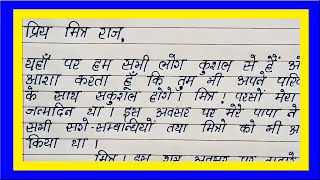 प्रिय मित्र राज,
यहाँ पर हम सभी लोग कुशल से हैं
आशा करता हूँ कि तुम भी अपने
के साथ सकुशल होगे। मित्र! परसों मेरा
जन्मदिन था। इस अवसर पर मेरे पापा ने
सभी सगे-सम्बन्धियों तथा मित्रों को भी
किया था।
मित्र! इस